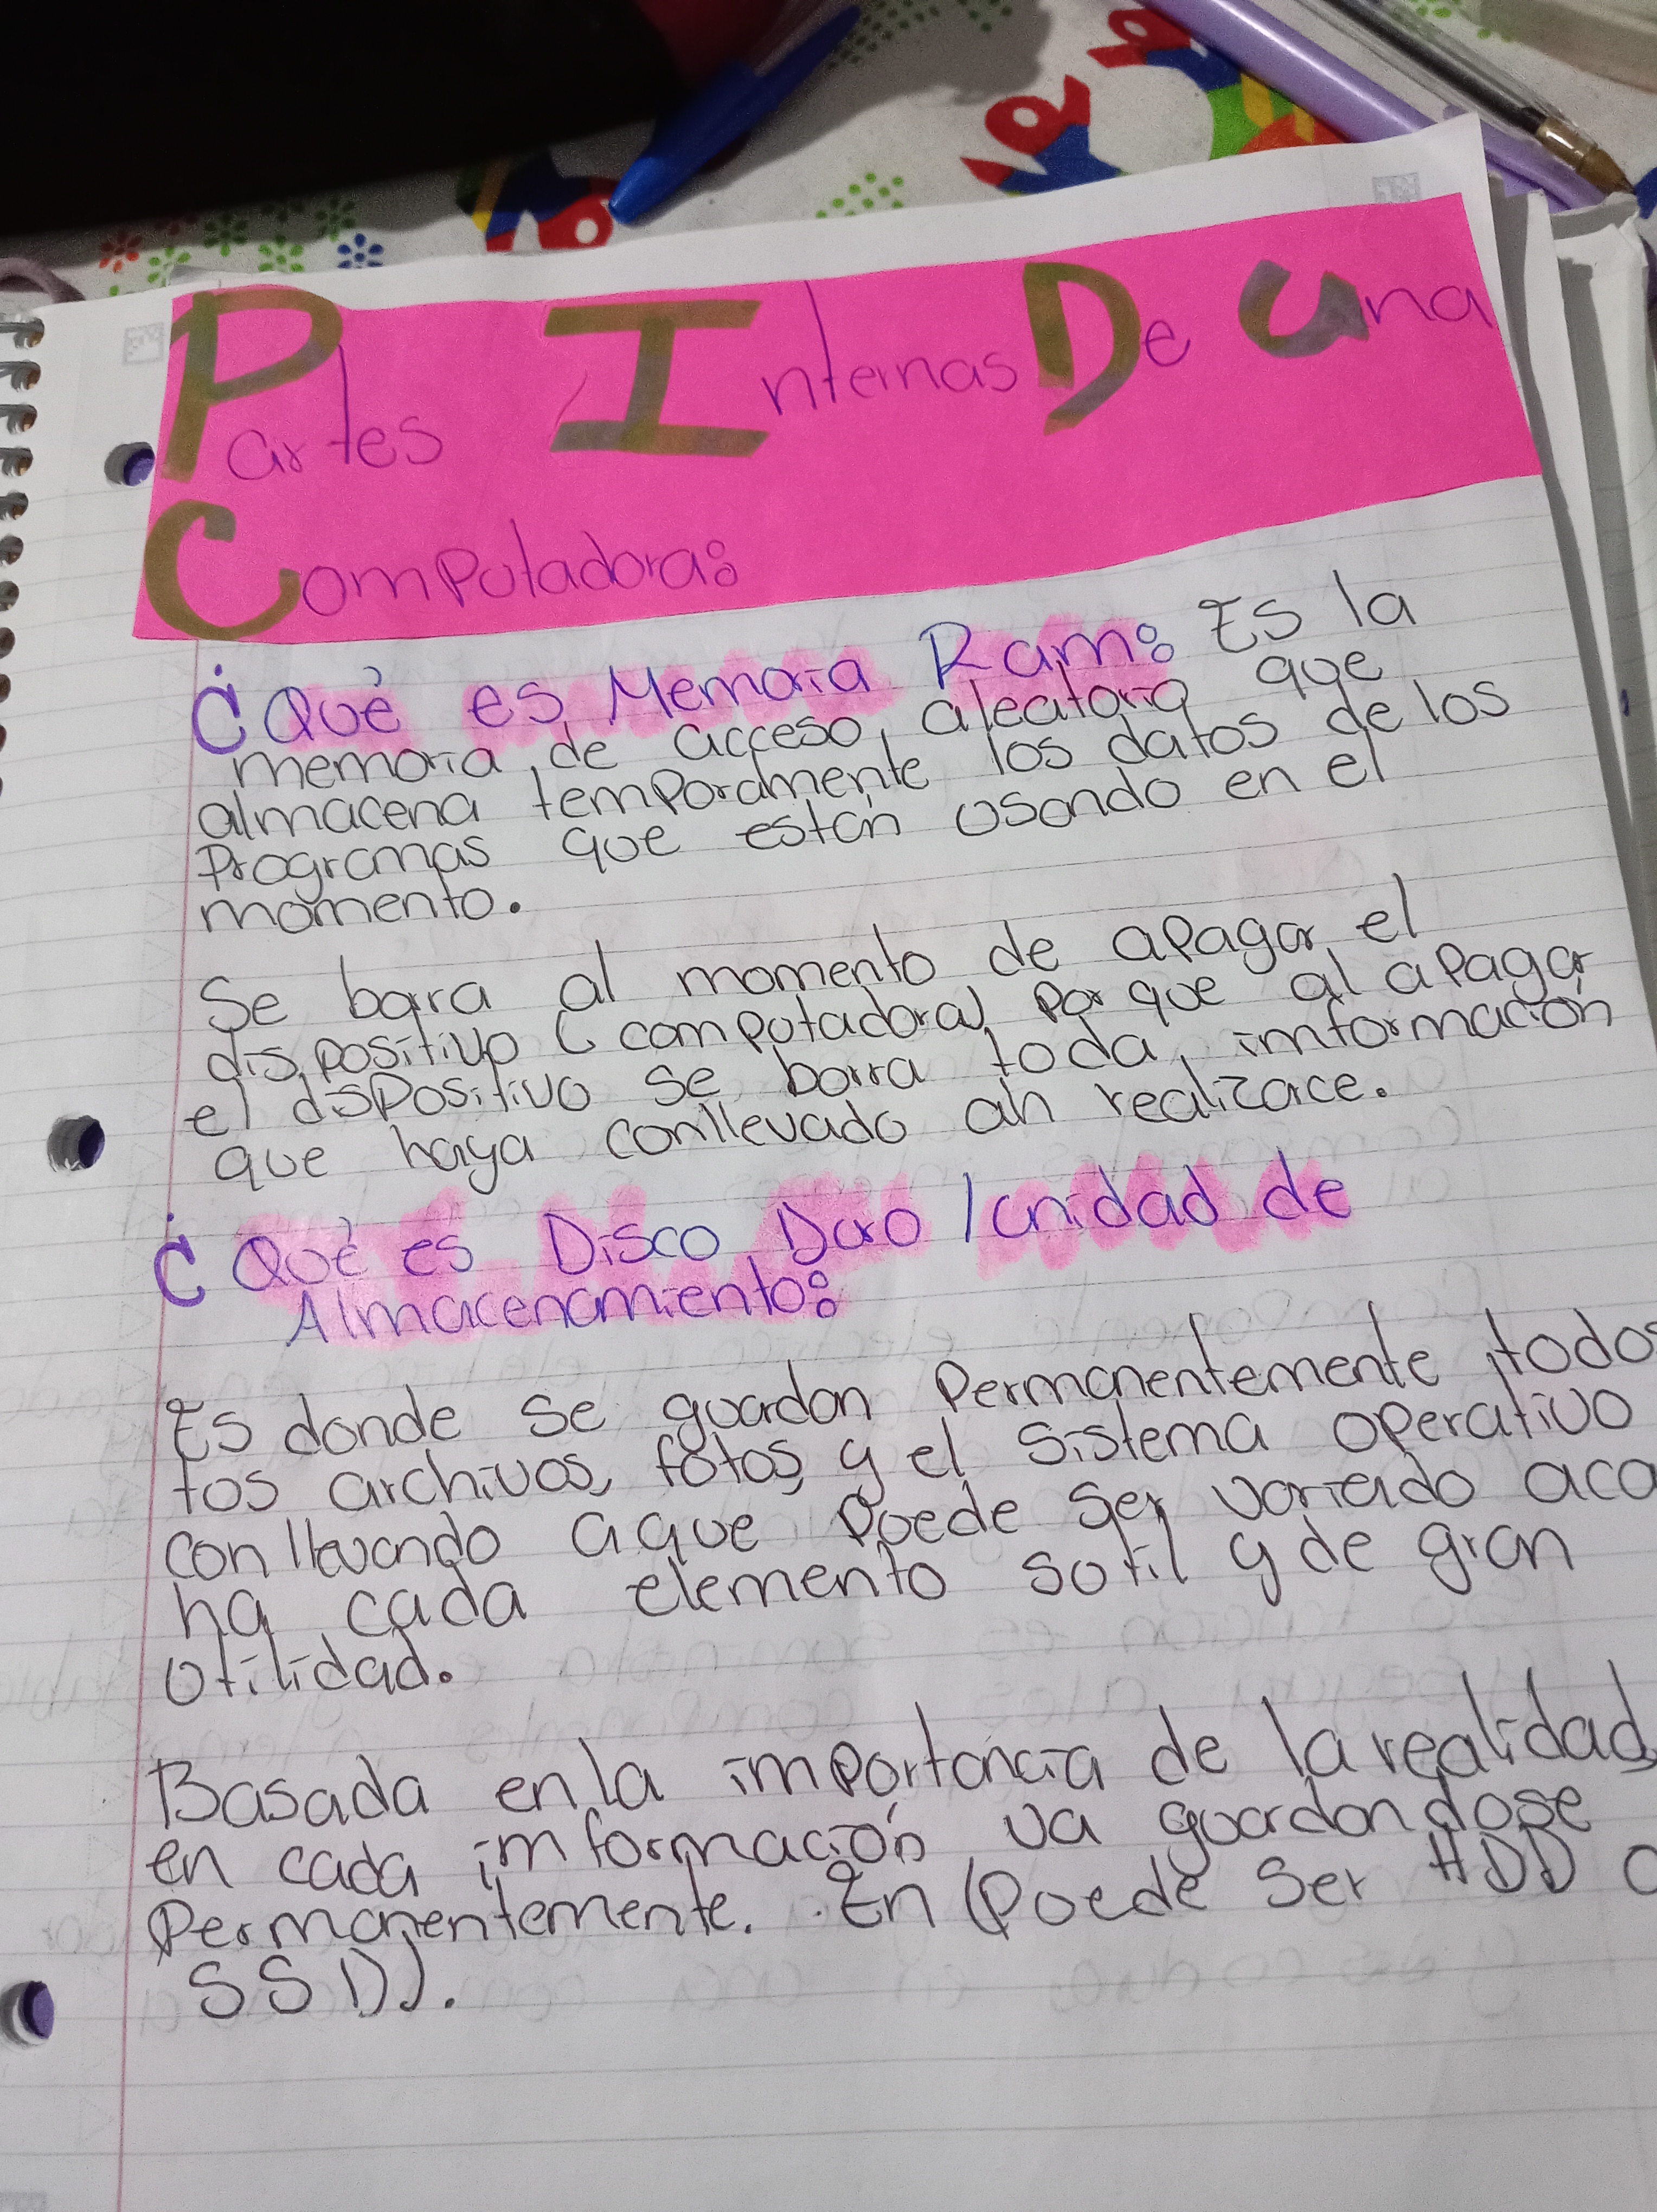 Partes Internas De Una
Computadora:
¿Qué es Memoria Ram: Es la
memoria de acceso aleatoria que
almacena temporamente los datos de los
Programas que están usando en el
momento.
Se borra al momento de apagar el
dispositivo (computadora) por que al apagar
el dispositivo se borra toda imformación
que haya conllevado ah realizace.
¿Qué es Disco Duro / unidad de
Almacenamiento:
Es donde se guardan Permanentemente todos
tos archivos, fotos y el sistema operativo
conllevando a que puede ser variado aca
ha cada elemento sutil y de gran
utilidad.
Basada en la importancia de la realidad
en cada imformación va guardandose
Permanentemente. En (Puede Ser HDD o
SSD).